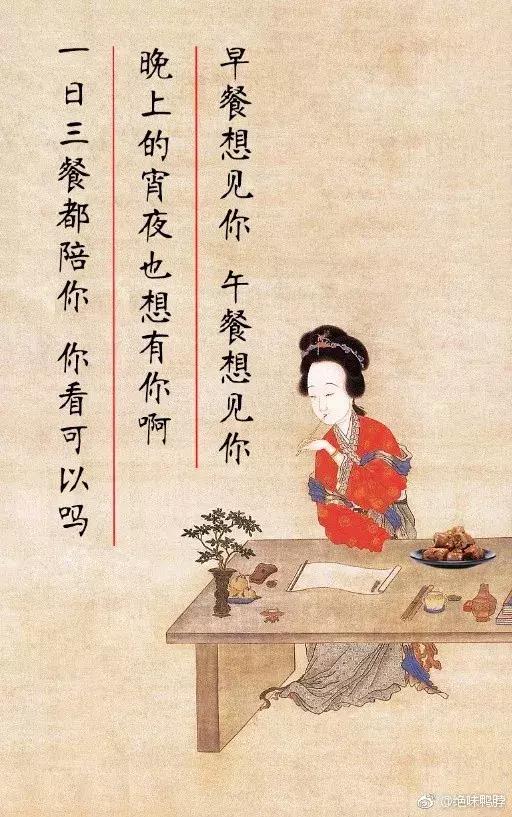 早餐想见你 午餐想见你
晚上的宵夜也想有你啊
一日三餐都陪你 你看可以吗
@绝味鸭脖